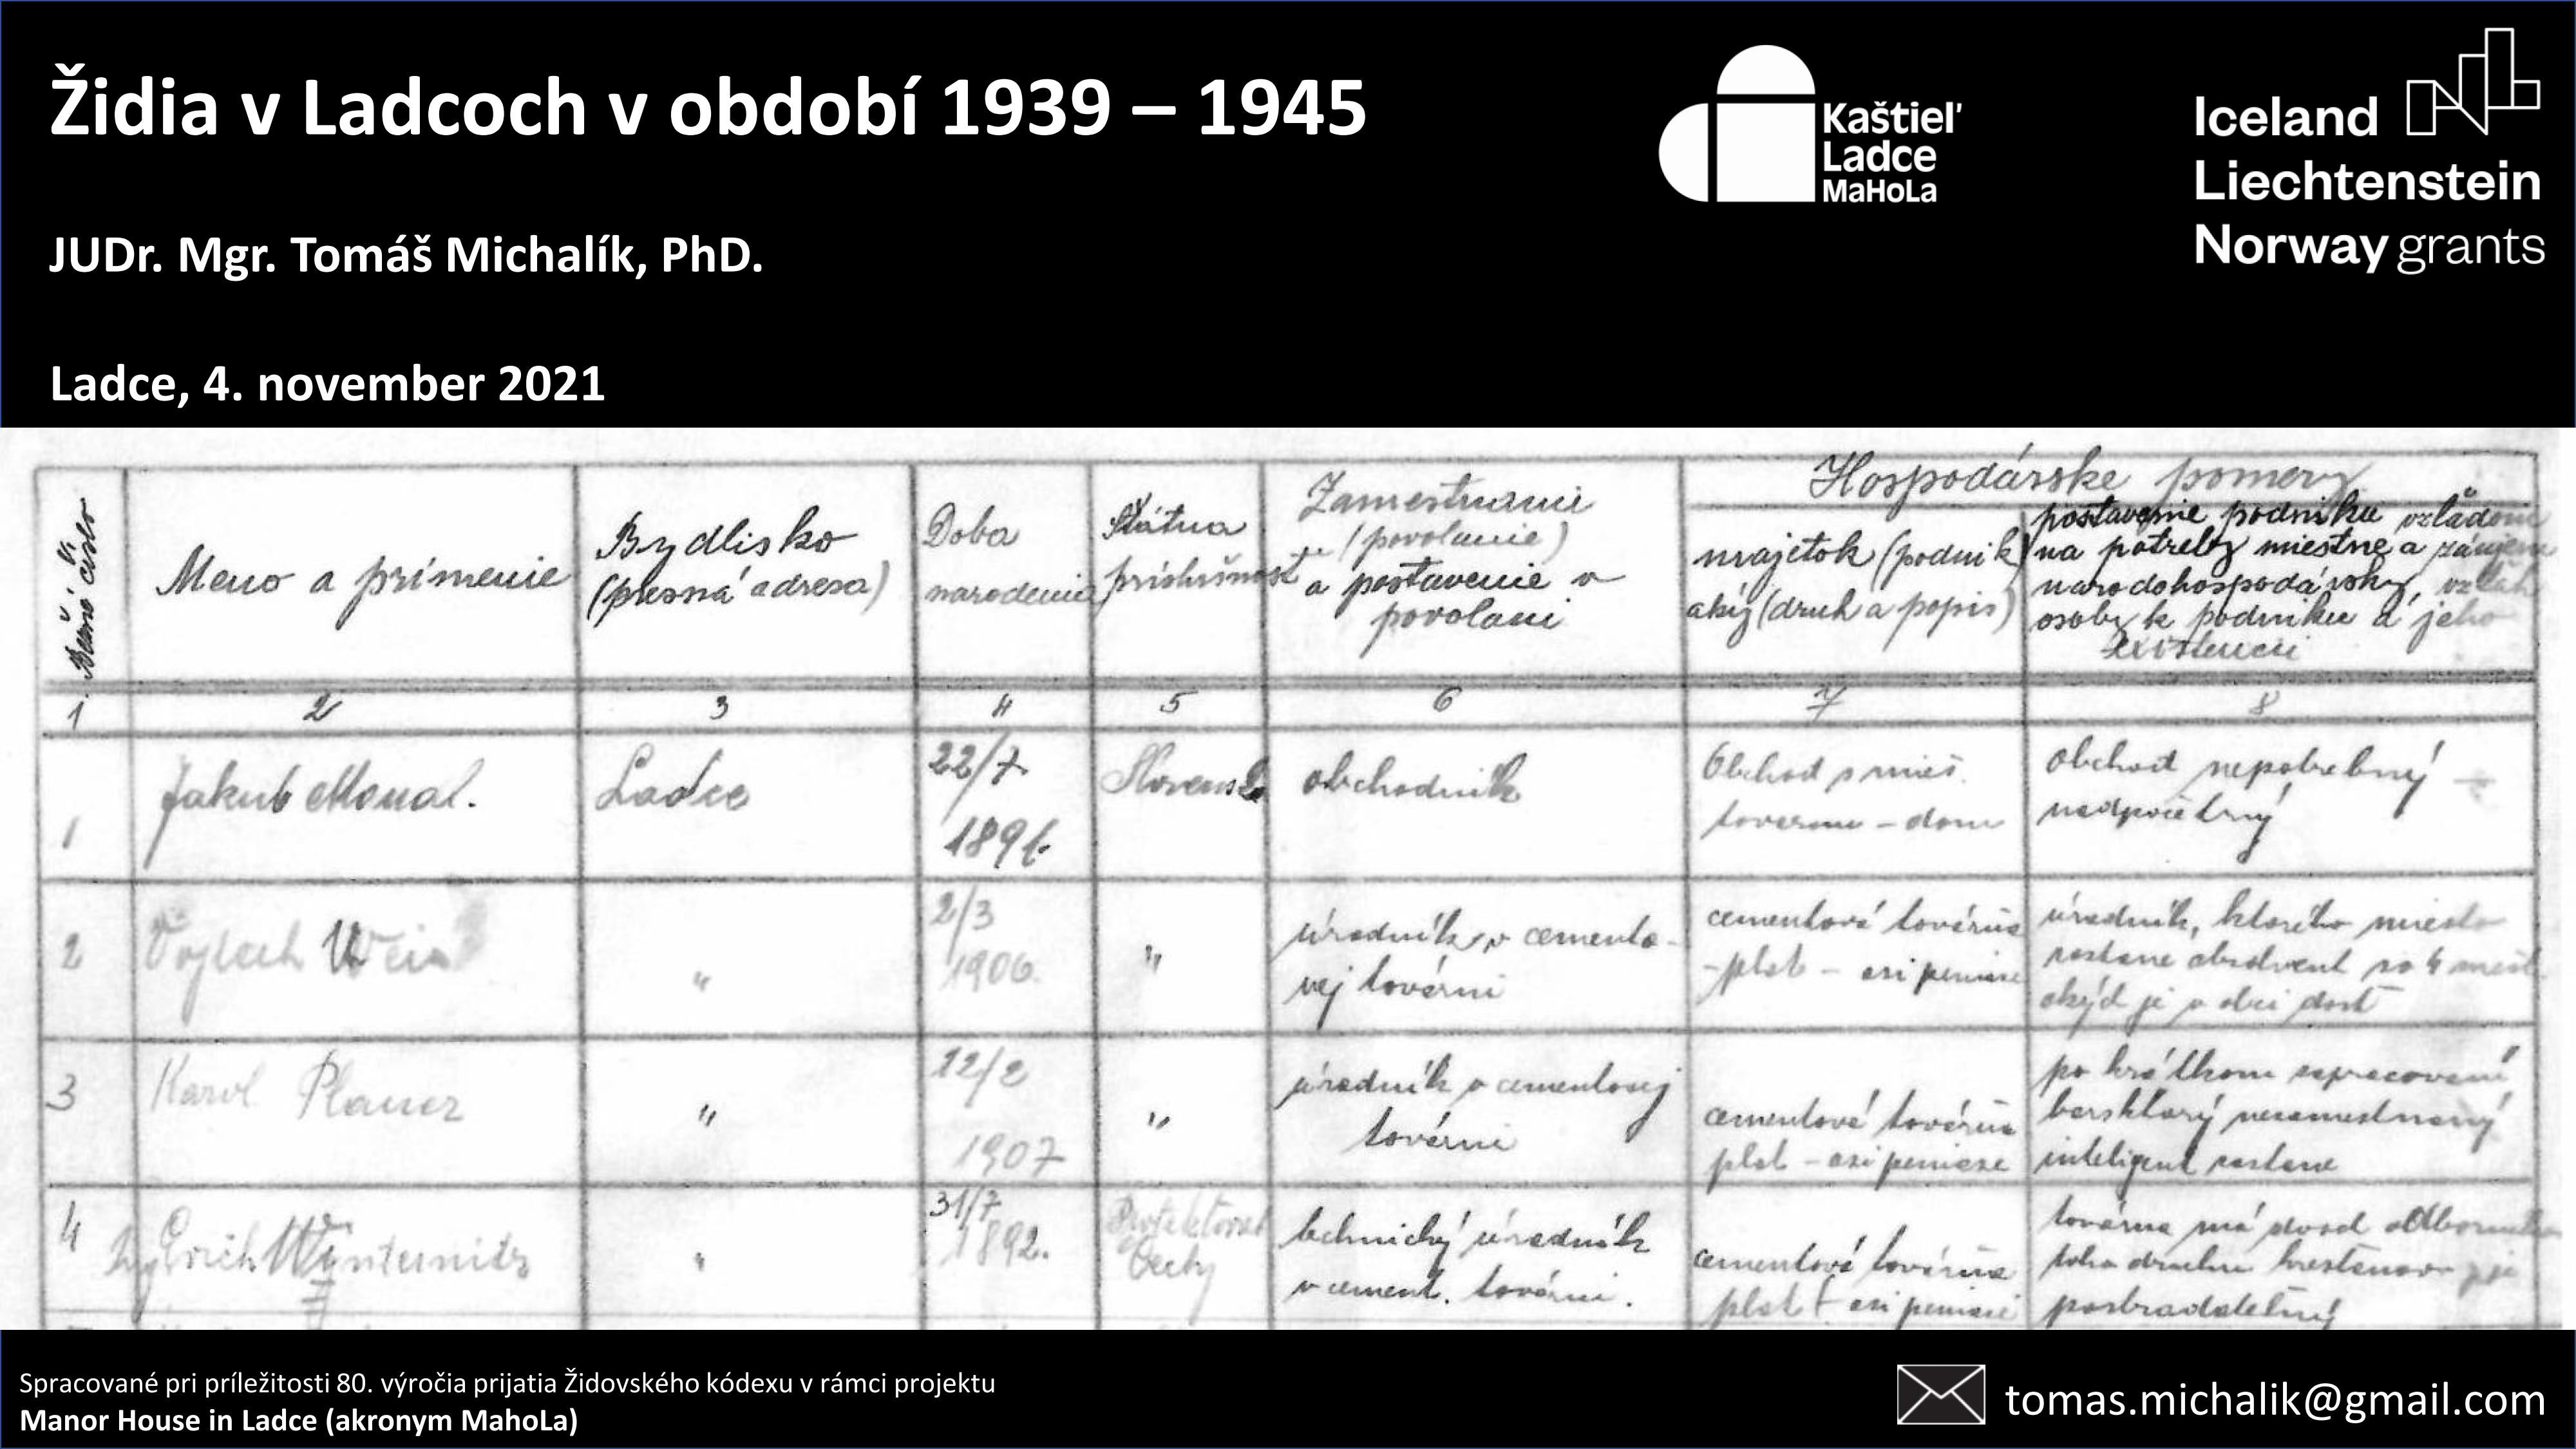 Židia v Ladcoch v období 1939 – 1945
JUDr. Mgr. Tomáš Michalík, PhD.
Ladce, 4. november 2021
Kaštieľ
Ladce
MaHoLa
Iceland
Liechtenstein
Norway grants
Hospodárske pomery
Bežné číslo
Meno a prímenie
Bydlisko
(presná adresa)
Doba
narodenia
Štátna
príslušnosť
Zamestnanie
(povolanie)
a postavenie v
povolaní
majetok (podnik)
aký (druh a popis)
postavenie podniku vzľadom
na potreby miestne a záujem
národohospodársky, vzťah
osoby k podniku a jeho
existencii
1 2 3 4 5 6 7 8
1
Jakub
Ladce
22/7
1891.
Slovensko
obchodník
Obchod s mieš.
tovarom – dom
obchod nepotrebný –
nadpočetný
2
Vojtech
"
2/3
1906.
"
úradník v cemento-
vej továrni
cementová továreň
- plat - asi peniaze
úradník, ktorého miesto
zastane absolvent
akých je v obci dosť
3
Karol Planer
"
12/2
1907
"
úradník v cementovej
továrni
cementová továreň
plat - asi peniaze
po krátkom zapracovaní
bársktorý nezamestnaný
inteligent zastane
4
Winternitz
"
31/7
1892.
Protektorat
Čechy
technický úradník
v cement. továrni.
cementová továreň
plat - asi peniaze
továrna má dosť odborníkov
toho druhu kresťanov
postradateľný
Spracované pri príležitosti 80. výročia prijatia Židovského kódexu v rámci projektu
Manor House in Ladce (akronym MahoLa)
tomas.michalik@gmail.com